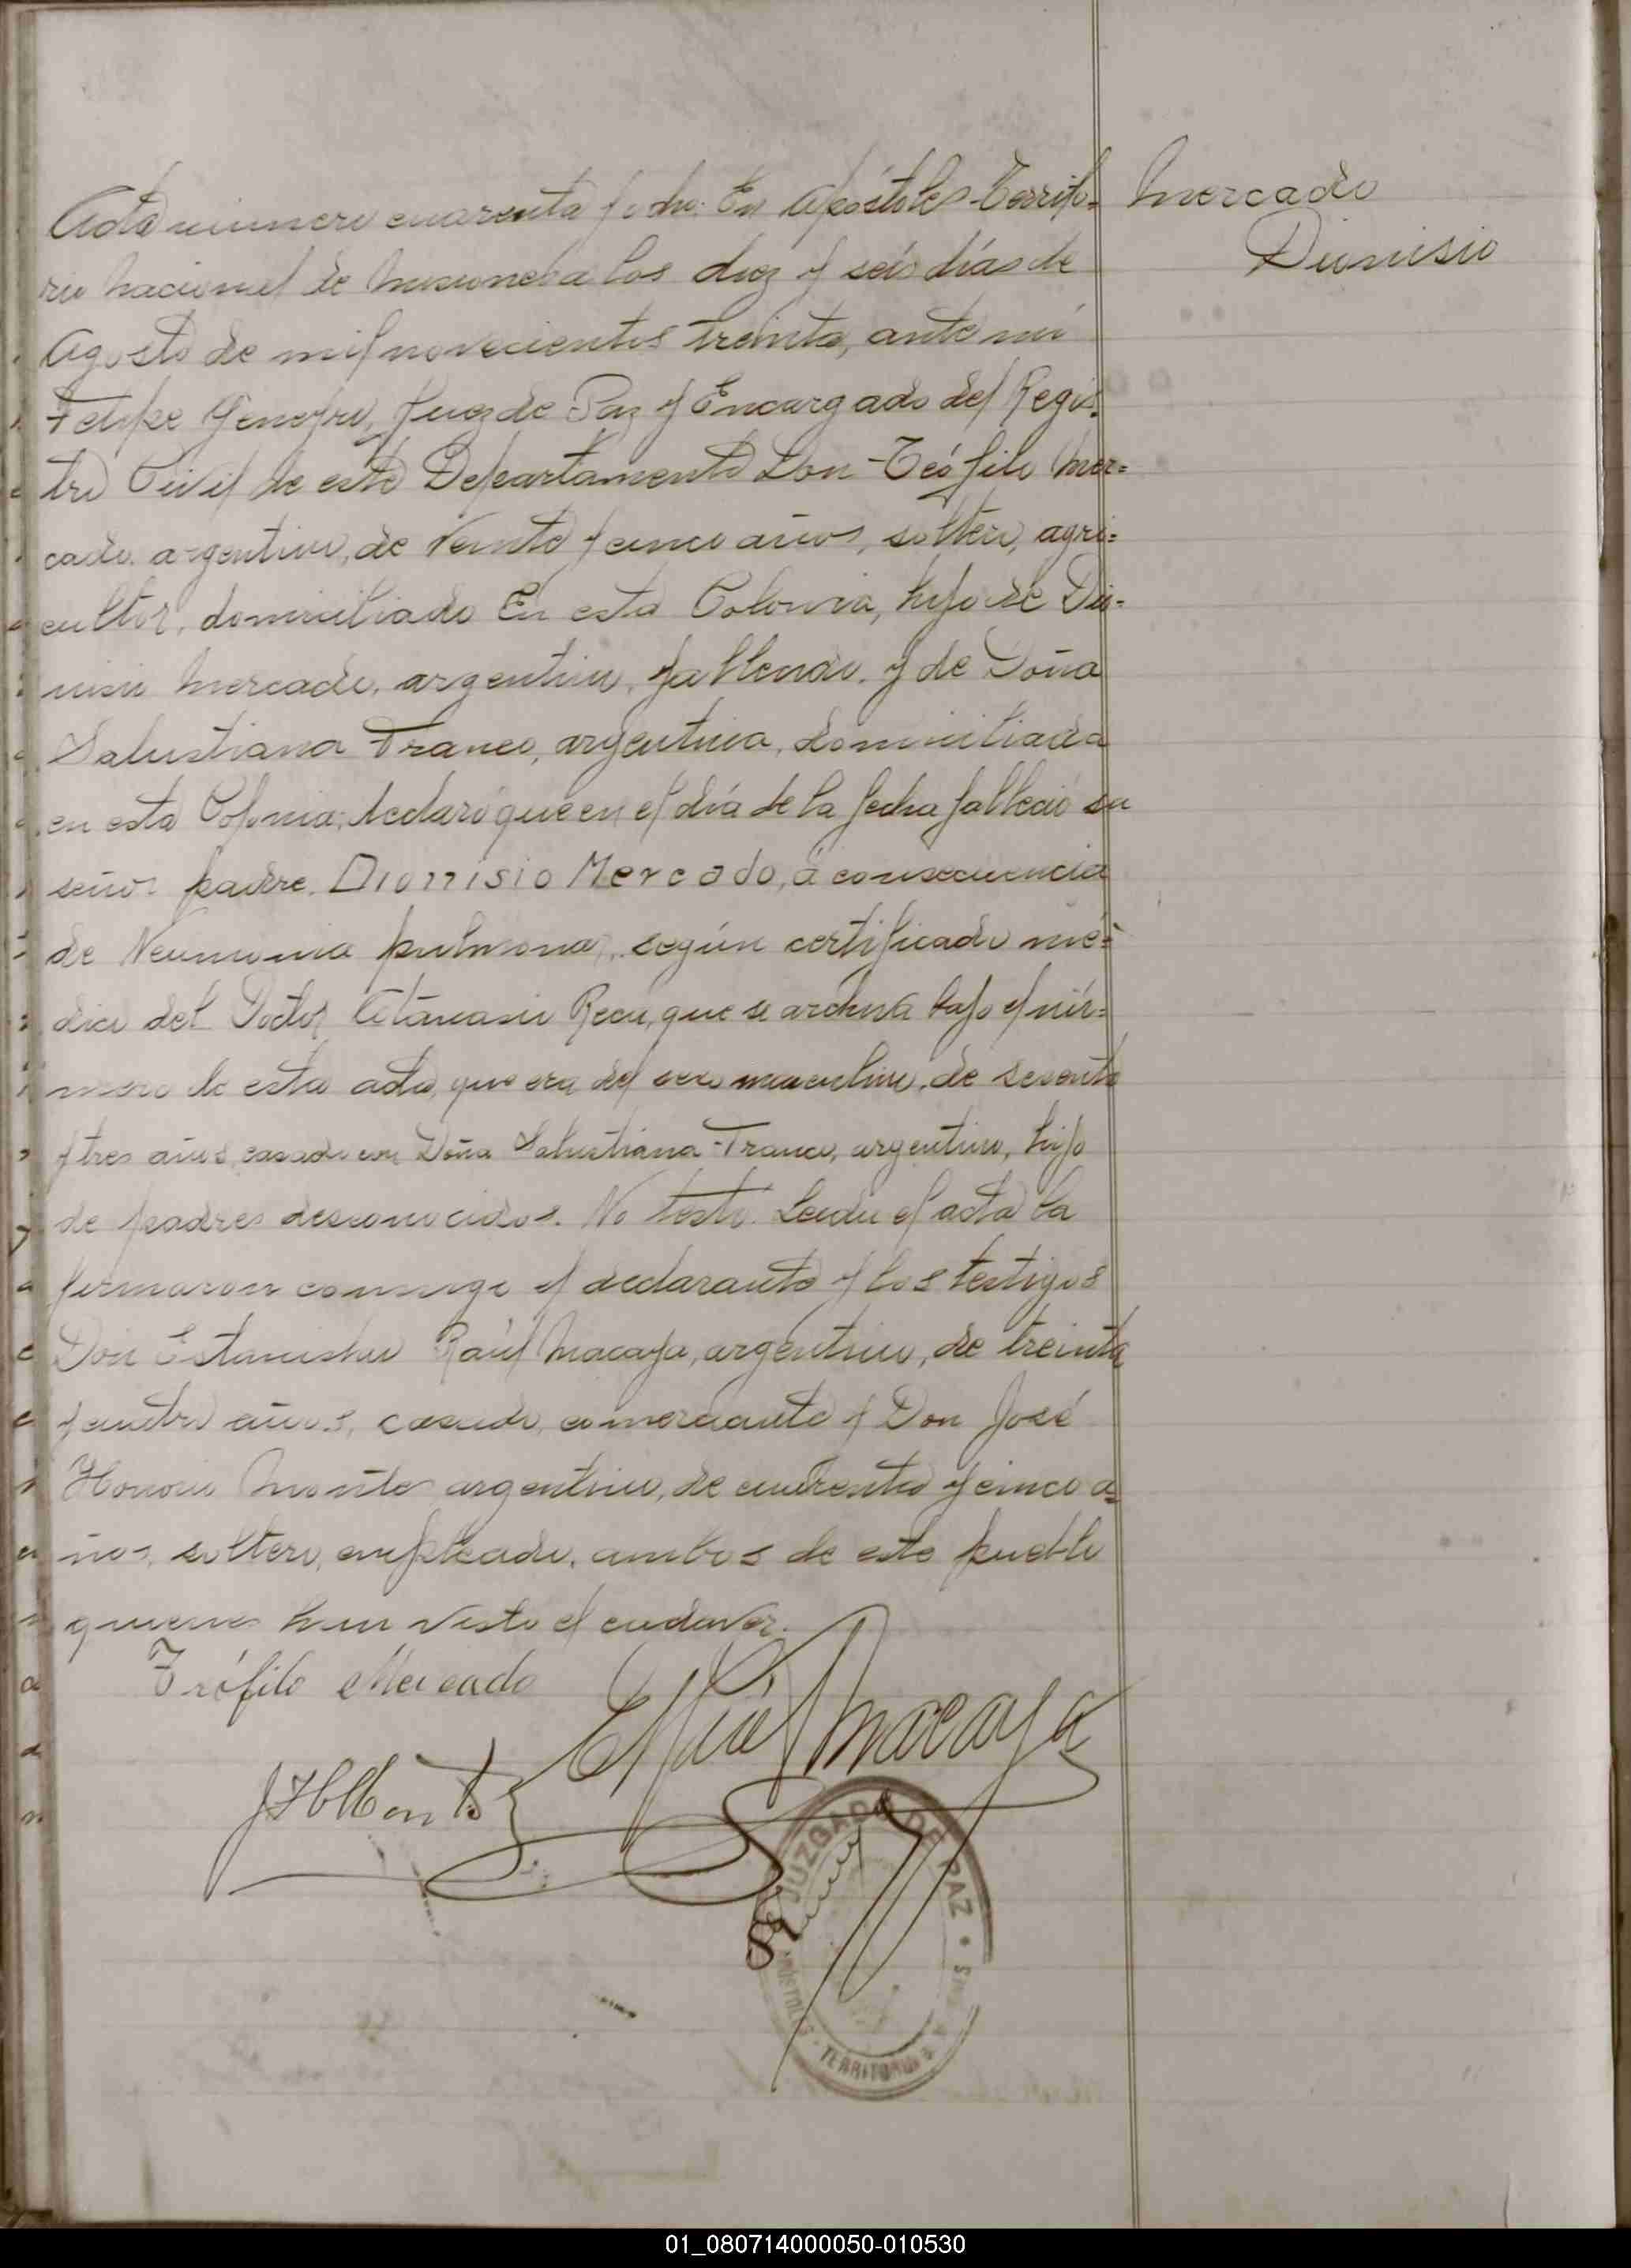 Mercado
Dionisio
Acta número cuarenta y ocho: En Apóstoles Territo=
rio Nacional de Misiones a los diez y seis días de
Agosto de mil novecientos treinta, ante mí
Felipe Juez de Paz y Encargado del Regis=
tro Civil de este Departamento Don Teófilo Mer=
cado, argentino, de veinte y cinco años, soltero, agri=
cultor, domiciliado en esta Colonia, hijo de Dio=
nisio Mercado, argentino, fallecido, y de Doña
Salustiana Franco, argentina, domiciliada
en esta Colonia; declaró que en el día de la fecha falleció su
señor padre, Dionisio Mercado, á consecuencia
de Neumonia pulmonar, según certificado mé=
dico del Doctor Atanasio que se archiva bajo el nú=
mero de esta acta, que era del sexo masculino, de sesenta
y tres años, casado con Doña Salustiana Franco, argentino, hijo
de padres desconocidos. No testó. Leida el acta la
firmaron conmigo el declarante y los testigos
Don Estanislao Raúl Macaya, argentino, de treinta
y cuatro años, casado, comerciante y Don José
Honorio Montes argentino, de cuarenta y cinco a=
ños, soltero, empleado, ambos de este pueblo
quienes han visto el cadaver.
Teófilo Mercado
E Raúl Macaya
J H Montes
JUZGADO DE PAZ
TERRITORIO
01_080714000050-010530